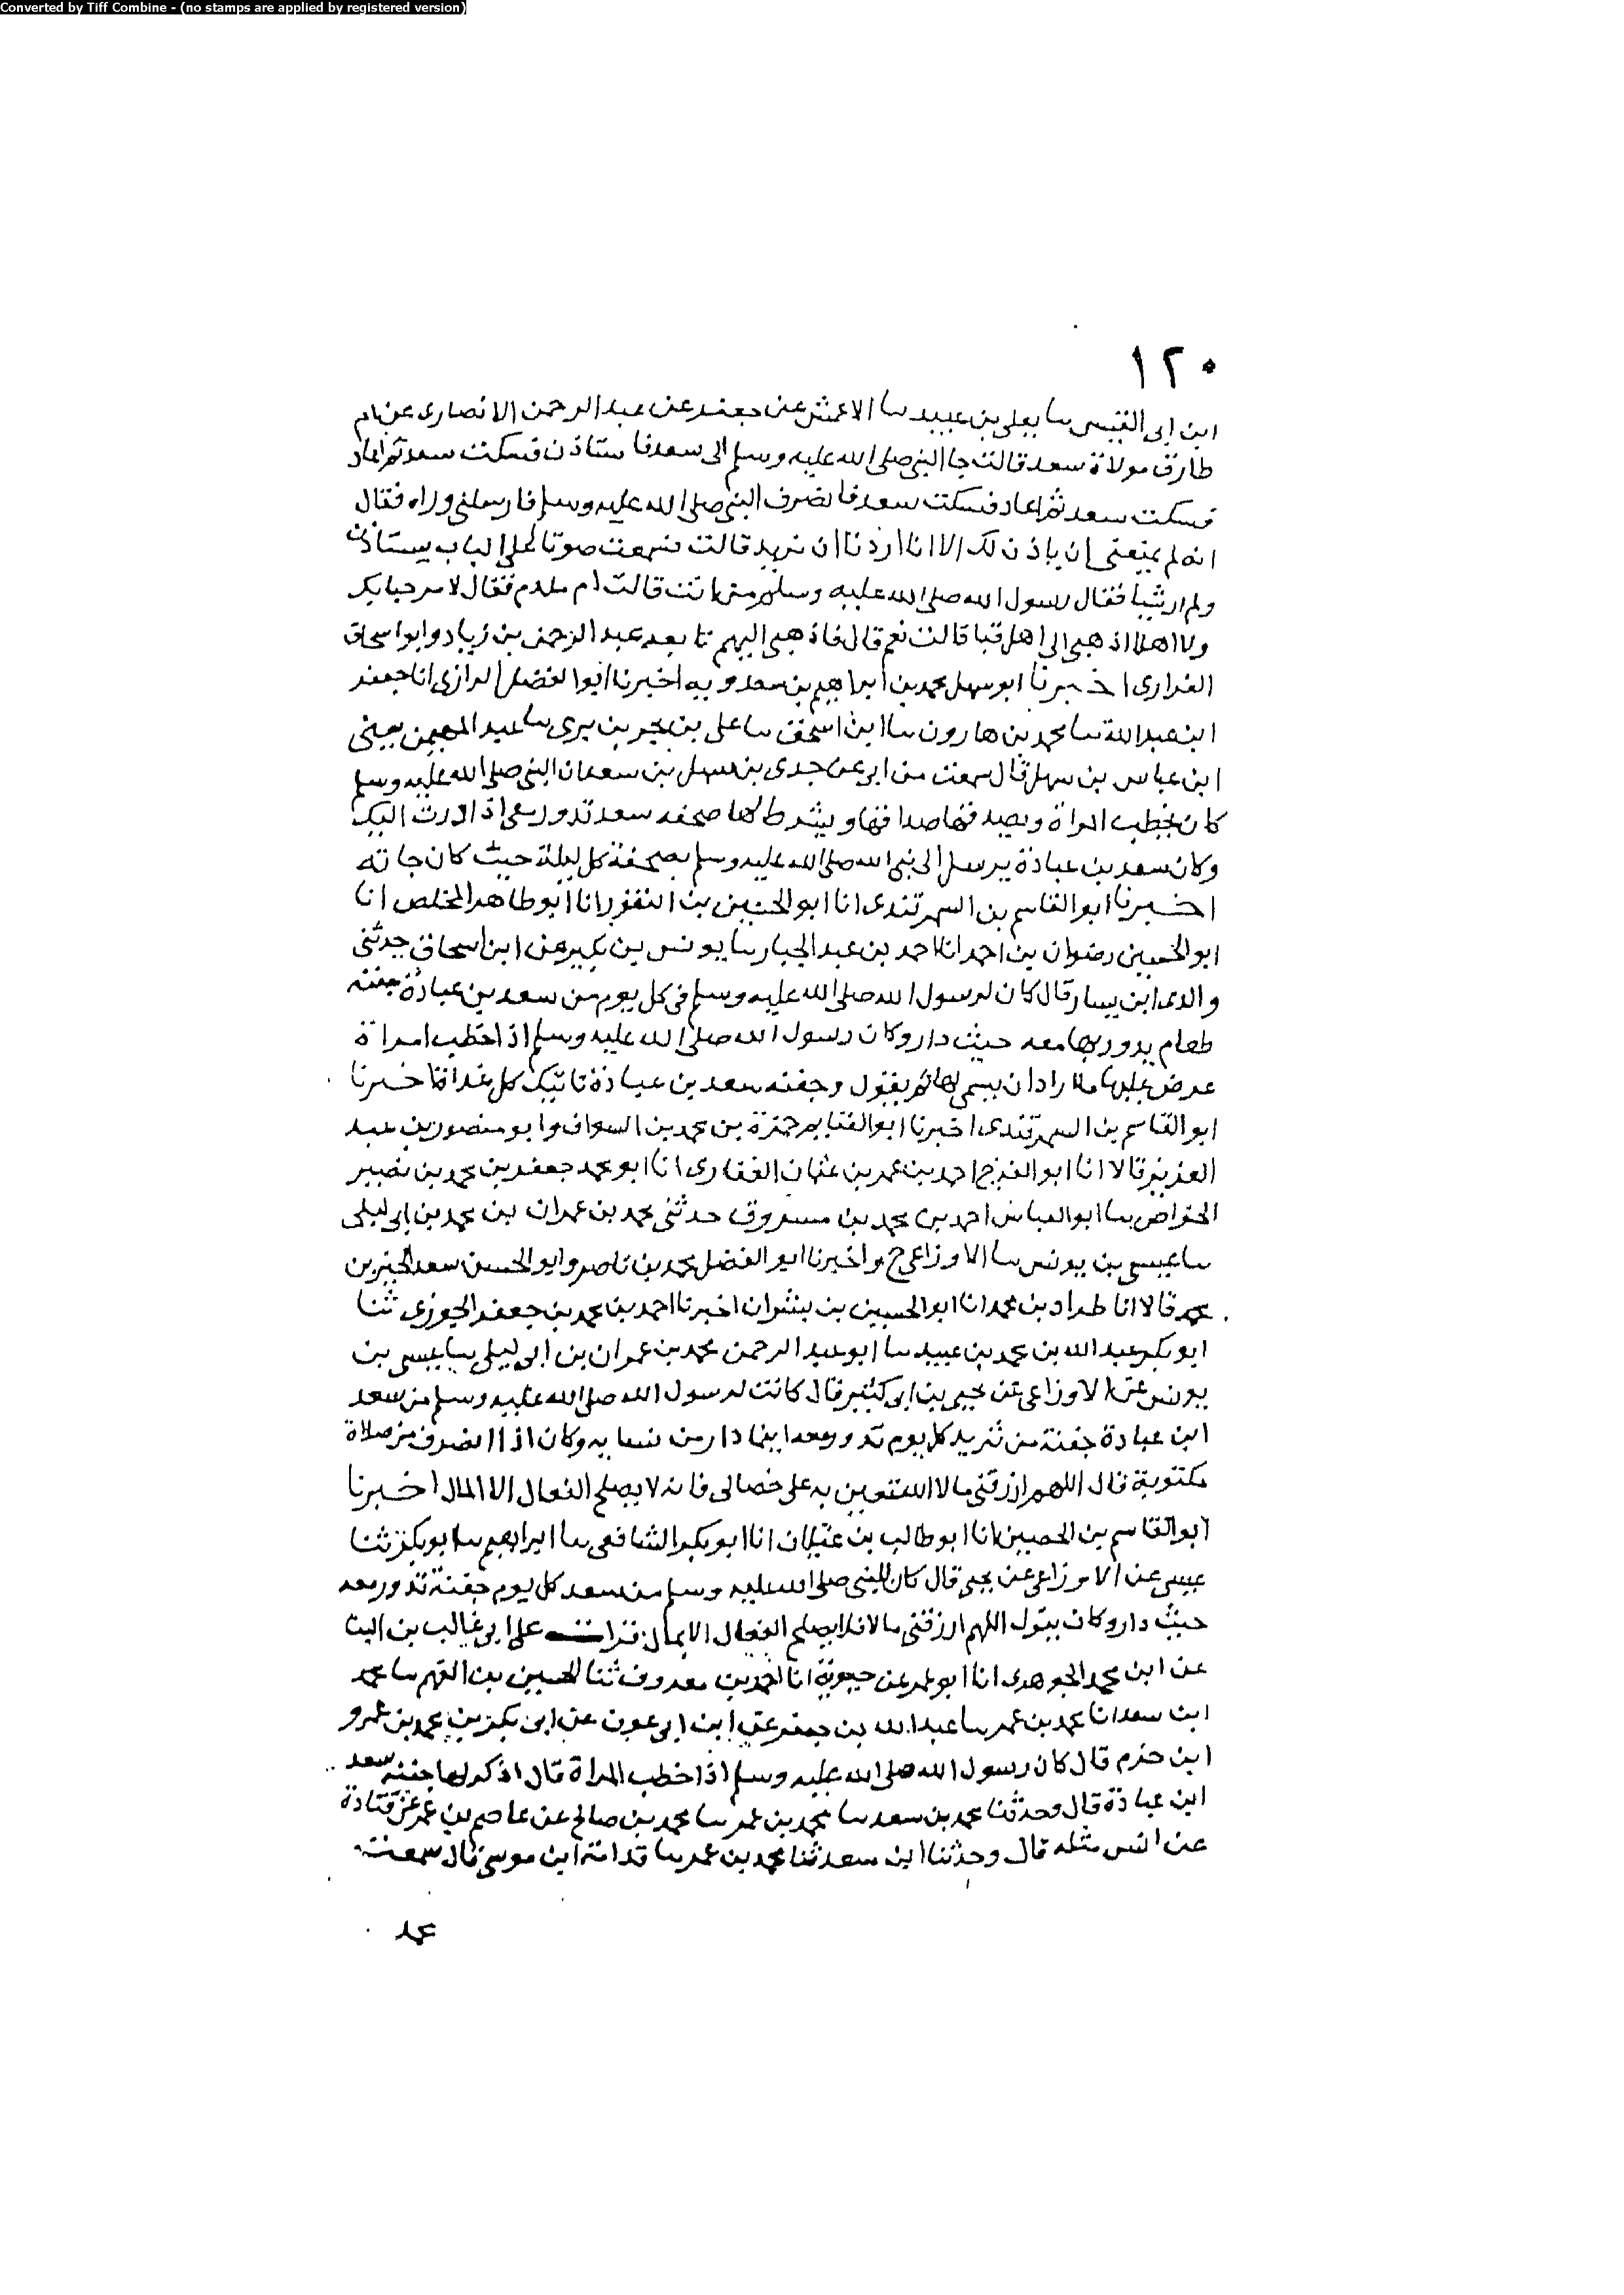 Converted by Tiff Combine - (no stamps are applied by registered version)
١٢٠
ابن ابى القيس سا يعلى بن عبيد سا الاعمش عن جعفر عن عبد الرحمن الانصارى عن ام
طارق مولاة سعد قالت جا النبى صلى الله عليه وسلم الى سعد فا ستاذن فسكت سعد ثم اعاد
فسكت سعد ثم اعاد فسكت سعد فانصرف النبى صلى الله عليه وسلم فارسلنى وراه فقال
انه لم يمنعنى ان ياذن لك الا انا اردنا ان تزيد قالت فسمعت صوتا على الباب يستاذن
ولم ار شيا فقال رسول الله صلى الله عليه وسلم من انت قالت ام ملدم فقال لا مرحبا بك
ولا اهلا اذهبى الى اهل قبا قالت نعم قال فاذهبى اليهم تابعه عبد الرحمن بن زياد وابو اسحاق
الفزارى اخبرنا ابو سهل محمد بن ابراهيم بن سعدويه اخبرنا ابوا لفضل الرازى انا جعفر
ابن عبد الله سا محمد بن هارون سا ابن اسحق سا على بن بحر بن برى سا عبد المهيمن يعنى
ابن عباس بن سهل قال سمعت من ابى عن جدى بن سهل بن سعد ان النبى صلى الله عليه وسلم
كان يخطب المراة ويصدقها صداقها ويشرط لها صحفه سعد تدور معى اذا درت اليك
وكان سعد بن عبادة يرسل الى نبى الله صلى الله عليه وسلم بصحفة كل ليلة حيث كان جاته
اخبرنا ابو القاسم بن السمرقندى انا ابو الحسين بن النقور انا ابو طاهر المخلص انا
ابو الحسين رضوان بن احمد انا احمد بن عبد الجبار سا يونس بن بكير عن ابن اسحاق حدثنى
والدى ابن يسار قال كان لرسول الله صلى الله عليه وسلم فى كل يوم من سعد بن عبادة جفنه
طعام يدور بها معه حيث دار وكان رسول الله صلى الله عليه وسلم اذا خطب امراة
عرض عليها ما اراد ان يسمى لها ثم يقول وجفنه سعد بن عبادة تاتيك كل غداة اخبرنا
ابو القاسم بن السمرقندى اخبرنا ابو الغنايم حمزة بن محمد بن السواق وابو منصور بن عبد
العزيز قالا انا ابو الفرج احمد بن عمر بن عثمان الغفارى انا ابو محمد جعفر بن محمد بن نصير
الخواص سا ابو العباس احمد بن محمد بن مسروق حدثنى محمد بن عمران بن محمد بن ابى ليلى
سا عيسى بن يونس سا الاوزاعى ح واخبرنا ابو الفضل محمد بن ناصر وابو الحسن سعد الخير بن
محمد قالا انا طراد بن محمد انا ابو الحسين بن بشران اخبرنا احمد بن محمد بن جعفر الجوزى ثنا
ابو بكر عبد الله بن محمد بن عبيد سا ابو عبد الرحمن محمد بن عمران بن ابى ليلى سا عيسى بن
يونس عن الاوزاعى عن يحيى بن ابى كثير قال كانت لرسول الله صلى الله عليه وسلم من سعد
ابن عبادة جفنة من ثريد كل يوم تدور معه اينما دار من نسايه وكان اذا انصرف من صلاة
مكتوبة قال اللهم ارزقنى مالا استعين به على فعالى فانه لا يصلح الفعال الا المال اخبرنا
ابو القاسم بن الحصين انا ابو طالب بن غيلان انا ابو بكر الشافعى سا ابراهيم سا ابو بكر ثنا
عيسى عن الاوزاعى عن يحيى قال كان للنبى صلى الله عليه وسلم من سعد كل يوم جفنة تدور معه
حيث دار وكان يقول اللهم ارزقنى مالا فلا يصلح الفعال الا بمال قرات على ابى غالب بن البنا
عن ابن محمد الجوهرى انا ابو عمر عن حيوية انا احمد بن معروف ثنا الحسين بن الفهم سا محمد
ابن سعد انا محمد بن عمر سا عبد الله بن جعفر عن ابن ابى عون عن ابى بكر بن محمد بن عمرو
ابن حزم قال كان رسول الله صلى الله عليه وسلم اذا خطب المراة قال اذكر لها جفنة سعد
ابن عبادة قال وحدثنا محمد بن سعد سا محمد بن عمر سا محمد بن صالح عن عاصم بن عمر عن قتادة
عن انس مثله قال وحدثنا ابن سعد ثنا محمد بن عمر سا قدامة ابن موسى قال سمعت
محمد